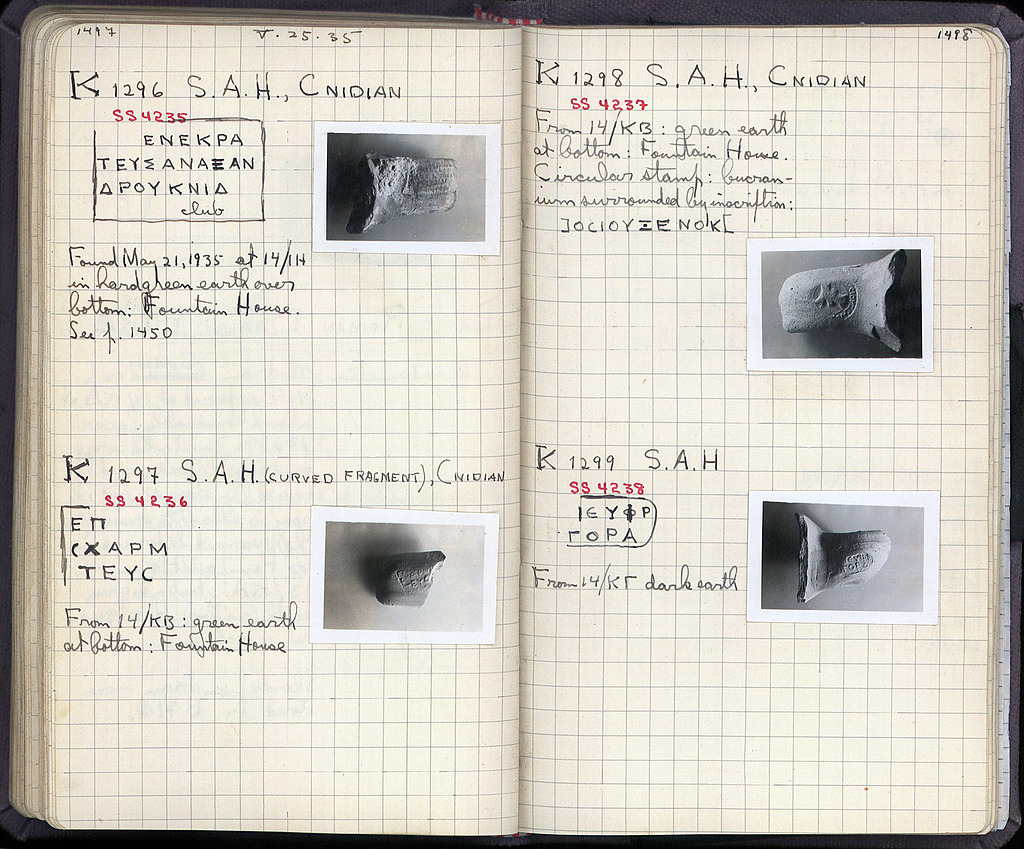 1497
V. 25. 35
K 1296 S.A.H., CNIDIAN
SS 4235
ΕΝΕΚΡΑ
ΤΕΥΣΑΝΑΞΑΝ
ΔΡΟΥΚΝΙΔ
club
Found May 21, 1935 at 14/ΙΗ
in hard green earth over
bottom: Fountain House.
See p. 1450
K 1297 S.A.H. (CURVED FRAGMENT), CNIDIAN
SS 4236
ΕΠ
CΧΑΡΜ
ΤΕΥC
From 14/ΚΒ: green earth
at bottom: Fountain House
1498
K 1298 S.A.H., CNIDIAN
SS 4237
From 14/ΚΒ: green earth
at bottom: Fountain House.
Circular stamp: bucran-
ium surrounded by inscription:
]ΟCΙΟΥΞΕΝΟΚ[
K 1299 S.A.H
SS 4238
ΙΕΥΦΡ
ΓΟΡΑ
From 14/ΚΓ dark earth